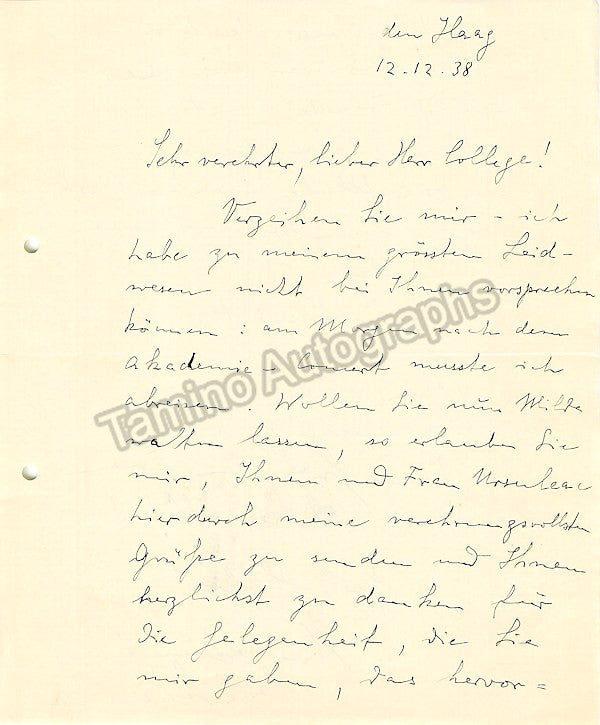 den Haag
12.12.38
Sehr verehrter, lieber Herr College!
Verzeihen Sie mir - ich
habe zu meinem grössten Leid-
wesen nicht bei Ihnen vorsprechen
können: am Morgen nach dem
Akademie-Concert musste ich
abreisen. Wollen Sie nun Milde
walten lassen, so erlauben Sie
mir, Ihnen und Frau Ursuleac
hierdurch meine verehrungsvollsten
Grüße zu senden und Ihnen
herzlichst zu danken für
die Gelegenheit, die Sie
mir gaben, das hervor=
Tamino Autographs